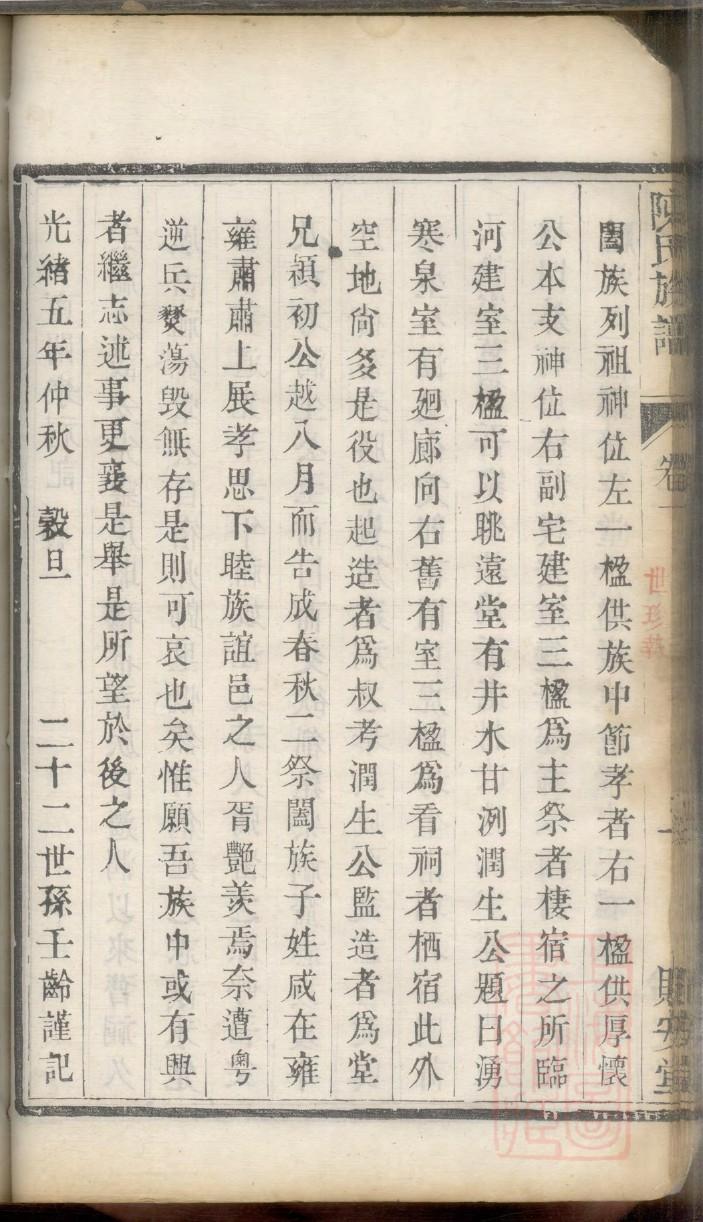 陳氏族譜
卷一
闔族列祖神位左一楹供族中節孝者右一楹供厚懷
公本支神位右副宅建室三楹為主祭者棲宿之所臨
河建室三楹可以眺遠堂有井水甘洌潤生公題曰湧
寒泉室有廻廊向右舊有室三楹為看祠者栖宿此外
空地尙多是役也起造者為叔考潤生公監造者為堂
兄穎初公越八月而告成春秋二祭闔族子姓咸在雍
雍肅肅上展孝思下睦族誼邑之人胥艷羨焉奈遭粵
逆兵燹蕩毀無存是則可哀也矣惟願吾族中或有興
者繼志述事更襄是舉是所望於後之人
光緒五年仲秋　穀旦　二十二世孫壬齡謹記